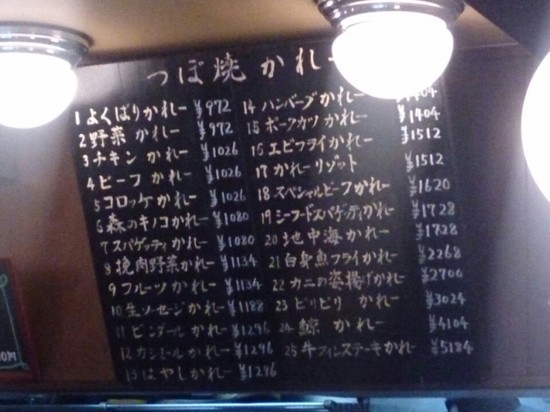 つぼ焼かれー
1 よくばりかれー ¥972
2 野菜 かれー ¥972
3 チキン かれー ¥1026
4 ビーフ かれー ¥1026
5 コロッケかれー ¥1026
6 森のキノコかれー ¥1080
7 スパゲッティかれー ¥1080
8 挽肉野菜かれー ¥1134
9 フルーツ かれー ¥1134
10 生ソーセージかれー ¥1188
11 ビンダールかれー ¥1296
12 カシミールかれー ¥1296
13 はやしかれー ¥1296
14 ハンバーグかれー ¥1404
15 ポークカツ かれー ¥1404
16 エビフライかれー ¥1512
17 かれーリゾット ¥1512
18 スペシャルビーフかれー ¥1620
19 シーフードスパゲティかれー ¥1728
20 地中海かれー ¥1728
21 白身魚フライかれー ¥2268
22 カニの姿揚げかれー ¥2700
23 ピリピリ かれー ¥3024
24 鯨 かれー ¥4104
25 牛フィレステーキかれー ¥5184